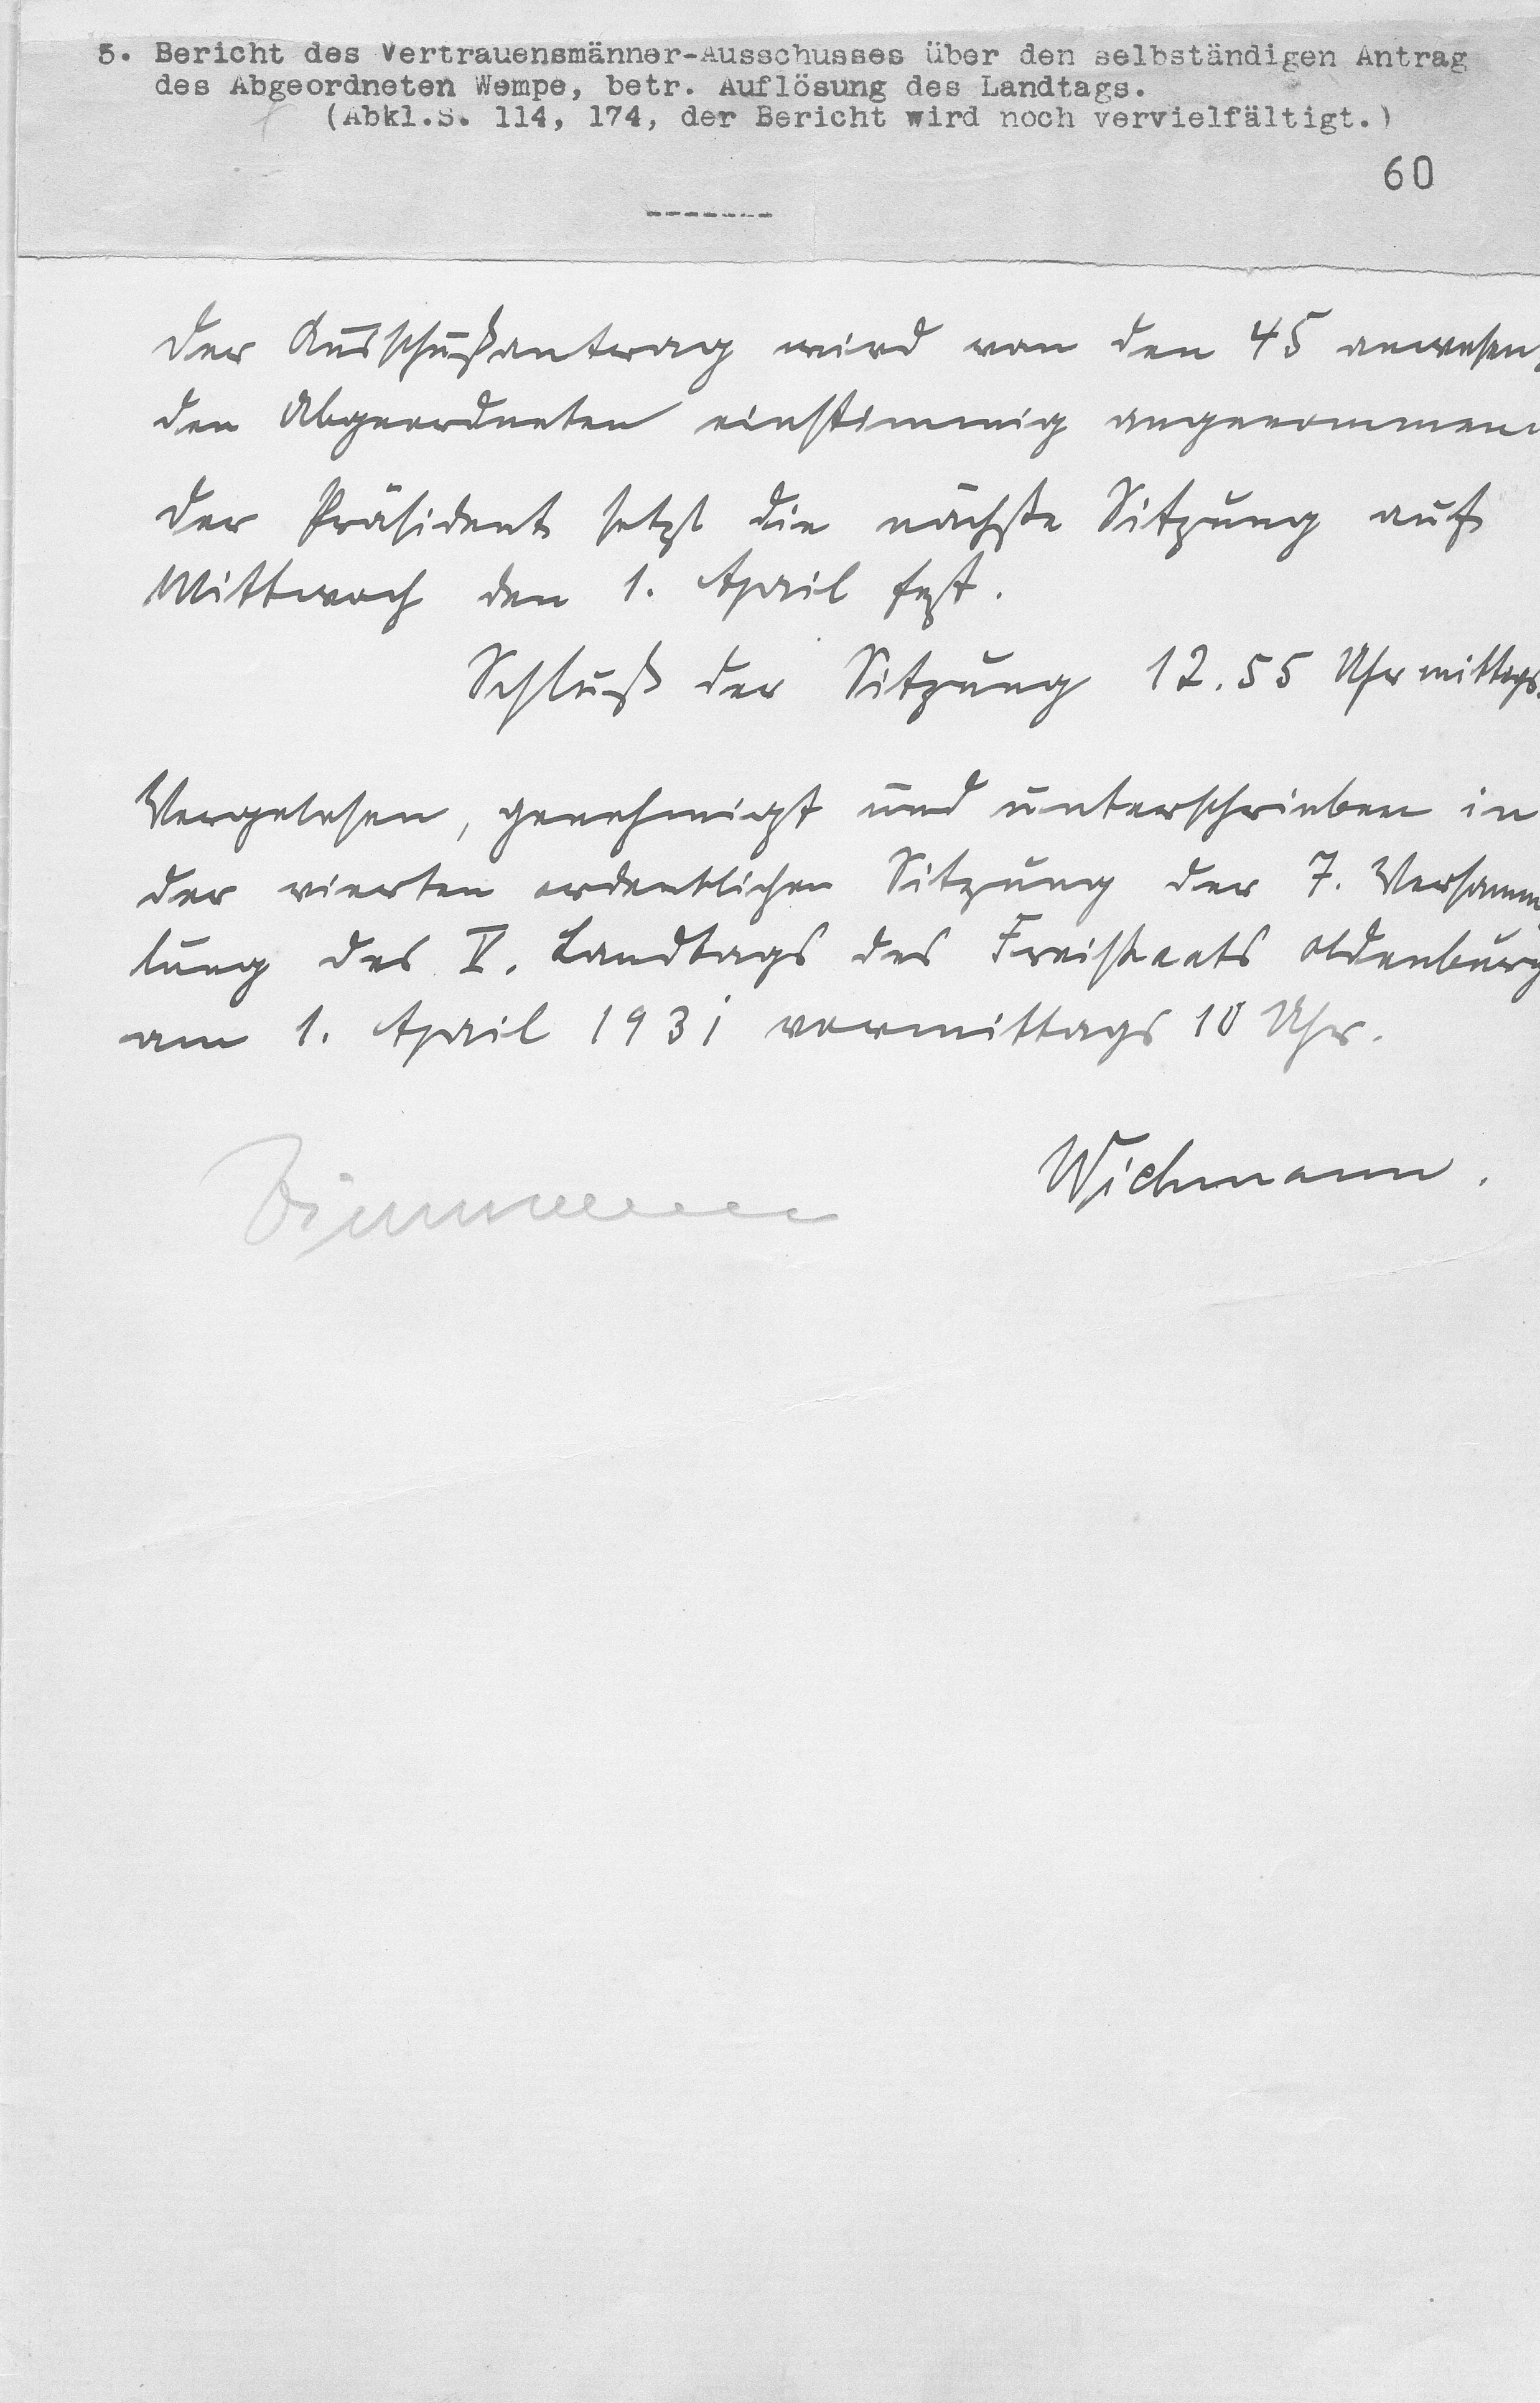 5. Bericht des Vertrauensmänner-Ausschusses über den selbständigen Antrag
des Abgeordneten Wempe, betr. Auflösung des Landtags.
(Abkl.S. 114, 174, der Bericht wird noch vervielfältigt.)
60
-------
Der Ausschußantrag wird von den 45 anwesen-
den Abgeordneten einstimmig angenommen
Der Präsident setzt die nächste Sitzung auf
Mittwoch den 1. April fest.
Schluß der Sitzung 12.55 Uhr mittags.
Vorgelesen, genehmigt und unterschrieben in
der vierten ordentlichen Sitzung der 7. Versamm
lung des V. Landtags des Freistaats Oldenburg
am 1. April 1931 vormittags 10 Uhr.
Wichmann.